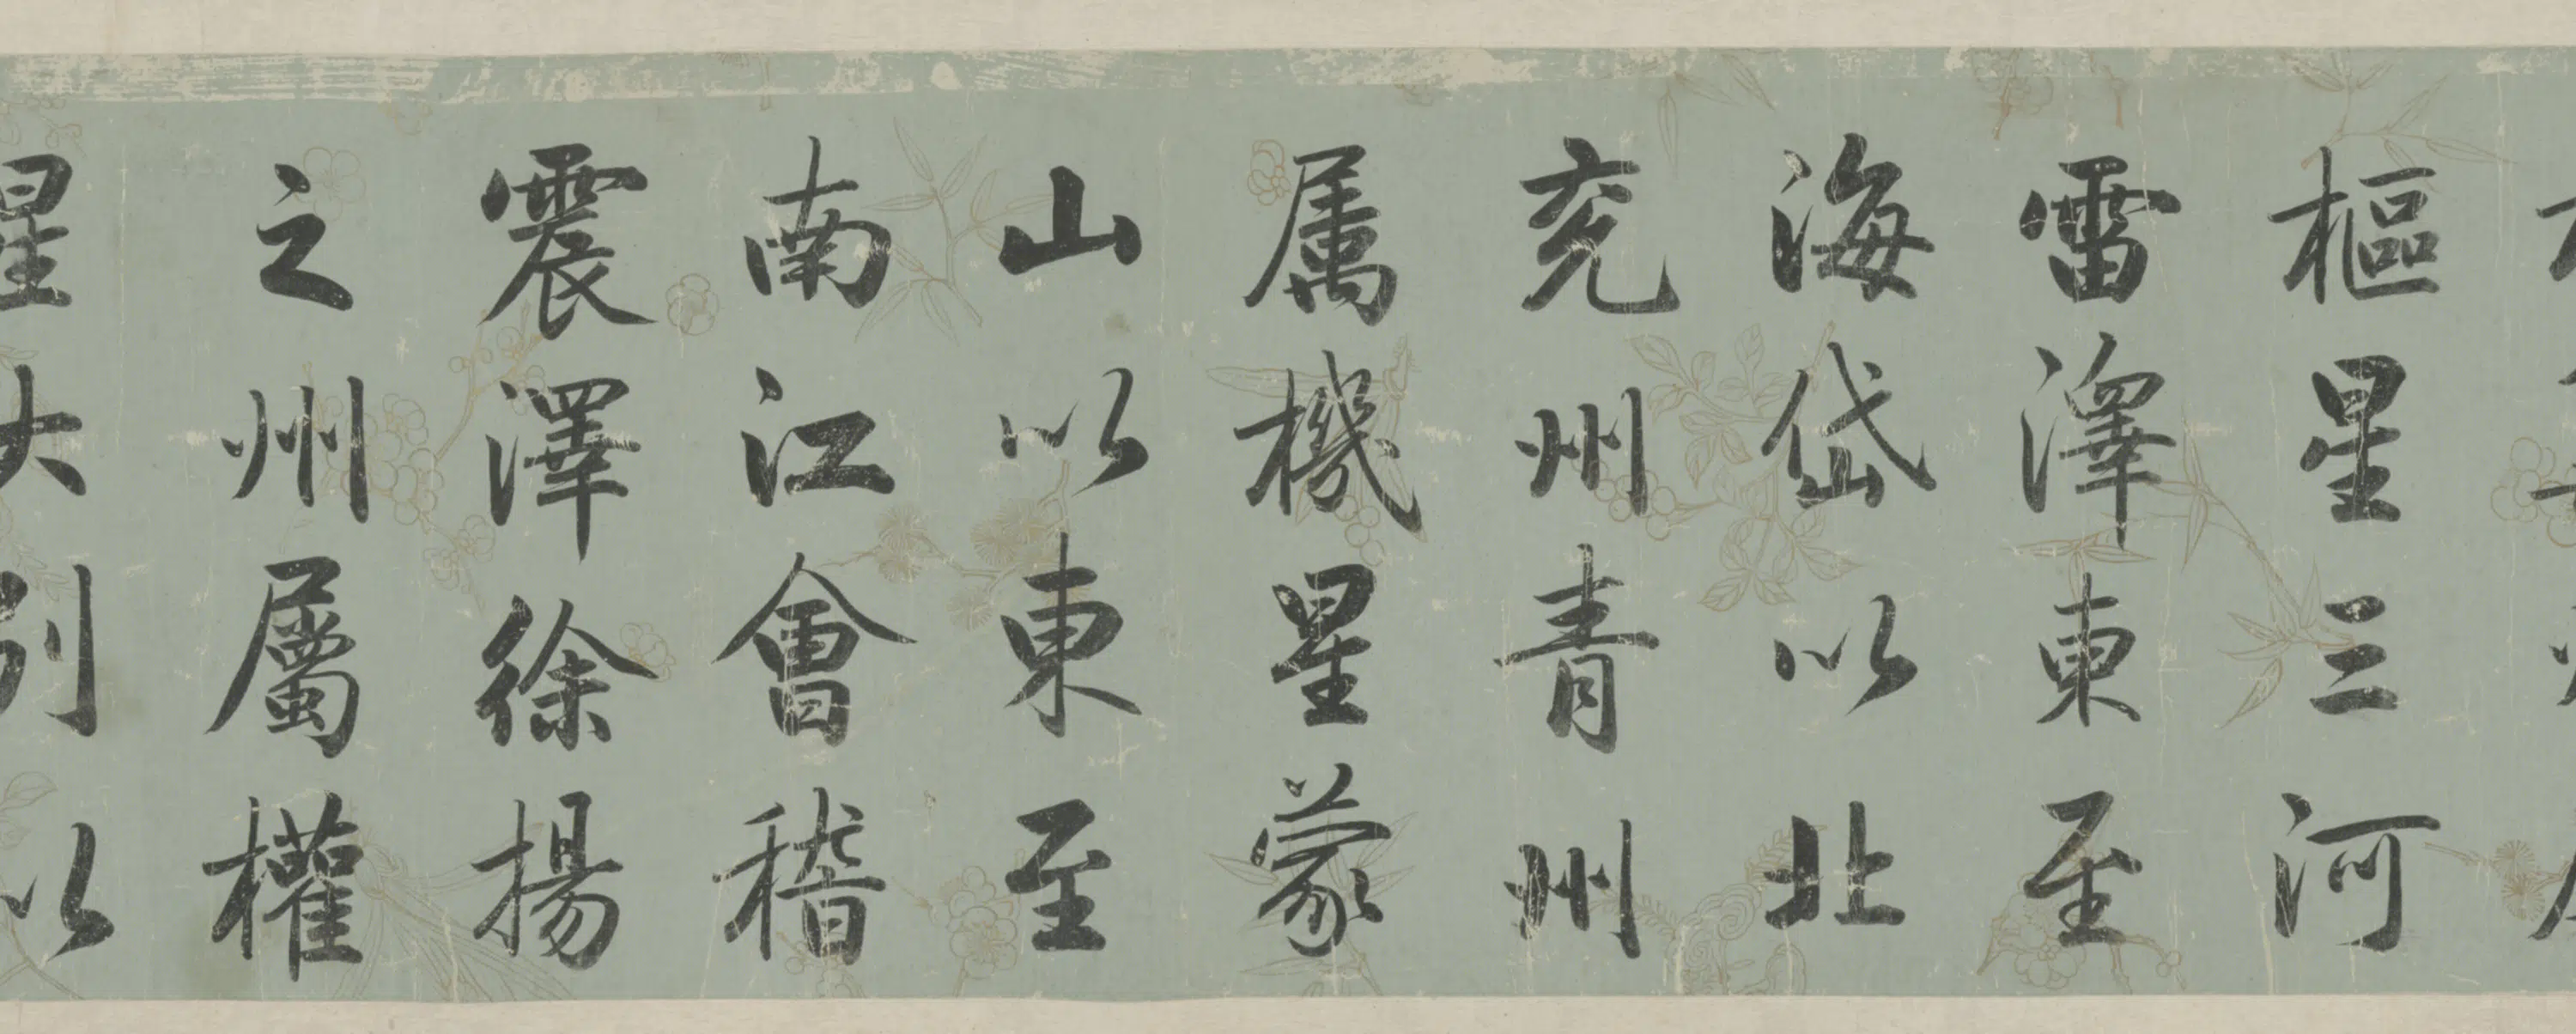 樞星三河
雷澤東至
海岱以北
兗州青州
属機星蒙
山以東至
南江會稽
震澤徐揚
之州屬權
星大別以